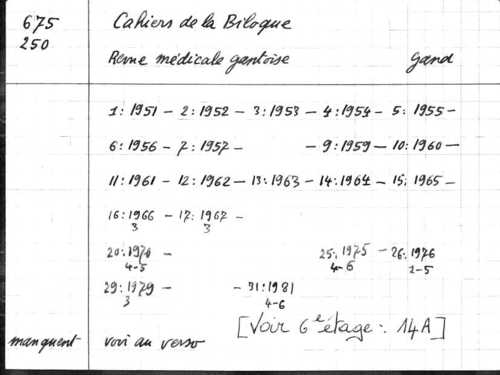 675 Cahiers de la Biloque
250
Revue médicale gantoise Gand
1: 1951 - 2: 1952 - 3: 1953 - 4: 1954 - 5: 1955 -
6: 1956 - 7: 1957 - - 9: 1959 - 10: 1960 -
11: 1961 - 12: 1962 - 13: 1963 - 14: 1964 - 15: 1965 -
16: 1966 - 17: 1967 -
3 3
20: 1970 - 25: 1975 - 26: 1976
4-5 4-6 2-5
29: 1979 - - 31: 1981
3 4-6
[Voir 6e étage: 14A]
manquent voir au verso